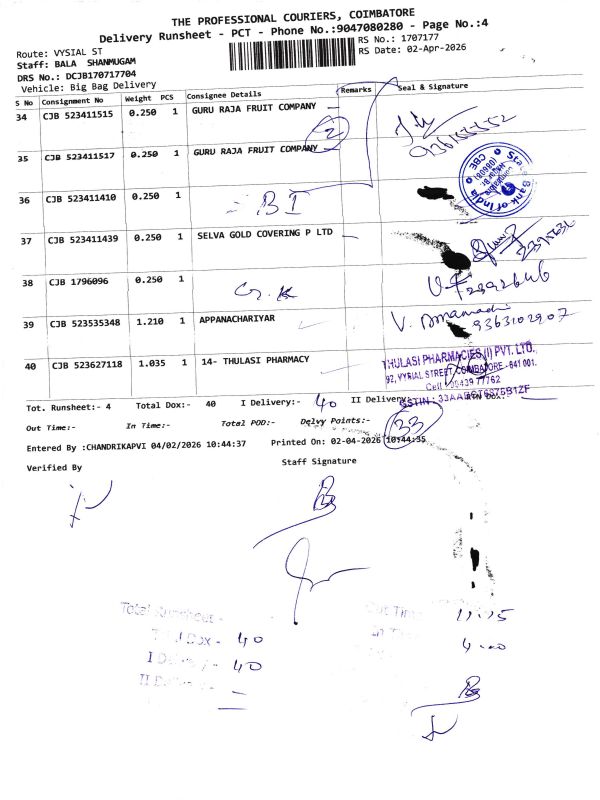 THE PROFESSIONAL COURIERS, COIMBATORE
Delivery Runsheet - PCT - Phone No.:9047080280 - Page No.:4
Route: VYSIAL ST
RS No.: 1707177
Staff: BALA SHANMUGAM
RS Date: 02-Apr-2026
DRS No.: DCJB170717704
Vehicle: Big Bag Delivery
S No Consignment No Weight PCS Consignee Details Remarks Seal & Signature
34 CJB 523411515 0.250 1 GURU RAJA FRUIT COMPANY
2
35 CJB 523411517 0.250 1 GURU RAJA FRUIT COMPANY
36 CJB 523411410 0.250 1 BI
State Bank of India
37 CJB 523411439 0.250 1 SELVA GOLD COVERING P LTD
38 CJB 1796096 0.250 1 G.K
39 CJB 523535348 1.210 1 APPANACHARIYAR
9363102907
40 CJB 523627118 1.035 1 14- THULASI PHARMACY
THULASI PHARMACIES (I) PVT. LTD.
92, VYRIAL STREET, COIMBATORE - 641 001.
Tot. Runsheet:- 4 Total Dox:- 40 I Delivery:- 40 II Delivery:-
Out Time:- In Time:- Total POD:- Delvy Points:- 33
Entered By :CHANDRIKAPVI 04/02/2026 10:44:37 Printed On: 02-04-2026 10:44:35
Verified By Staff Signature
Total Runsheet -
Out Time 11.15
Total Dox - 40
In Time 4.00
I Delivery - 40
II Delivery - —